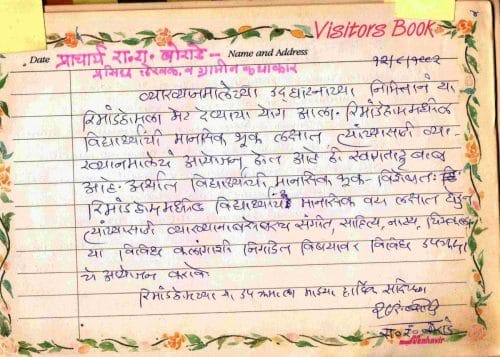 Visitors Book
Date प्राचार्य रा. रं. बोराडे -- Name and Address
प्रसिद्ध लेखक व ग्रामीन कथाकार
व्याख्यानमालेच्या उद्घाटनाच्या निमित्तानं या
रिमांडहोमला भेट देण्याचा योग आला. रिमांडहोममधील
विद्यार्थ्यांची मानसिक भूक लक्षात त्यांच्यासाठी व्या-
ख्यानमालेचं आयोजन होत आहे ही स्वागतार्ह बाब
आहे. अर्थात विद्यार्थ्यांची मानसिक भूक- विशेषतः
रिमांडहोममधील विद्यार्थ्यांचं मानसिक वय लक्षात घेऊन
त्यांच्यासाठी व्याख्यानाबरोबरच संगीत, साहित्य, नाट्य,
या विविध कलांशी निगडित विषयावर विविध
चे आयोजन करावे
रिमांडहोमच्या या उपक्रमाला माझ्या हार्दिक सदिच्छा
रा. रं. बोराडे